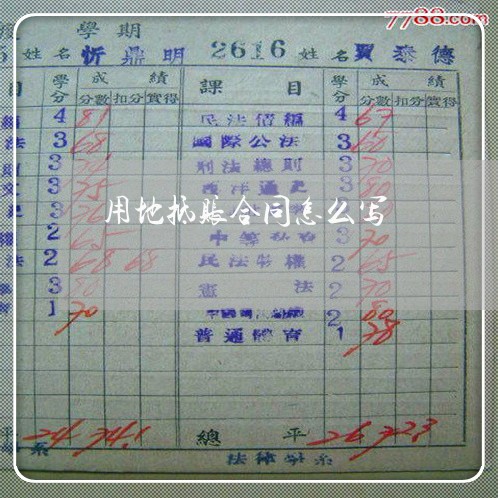 7788.com
學期
5 姓名 忻鼎明 2616 姓名 賈泰德
目 學分 成績 課目 學分 成績
分數 扣分 實得 分數 扣分 實得
4 81 民法債編 4 67
法 3 68 國際公法 3 60
3 刑法總則 3 70
文 3 75 西洋通史 3 80
3 3
用地抵账合同怎么写
權 2 65 3 70
法 2 68 68 民法物權 2 65
3 80 憲法 2 70
1 70 2 80
普通體育 1 78
平 24 74.1 總平 26 72.3
系 法律學系